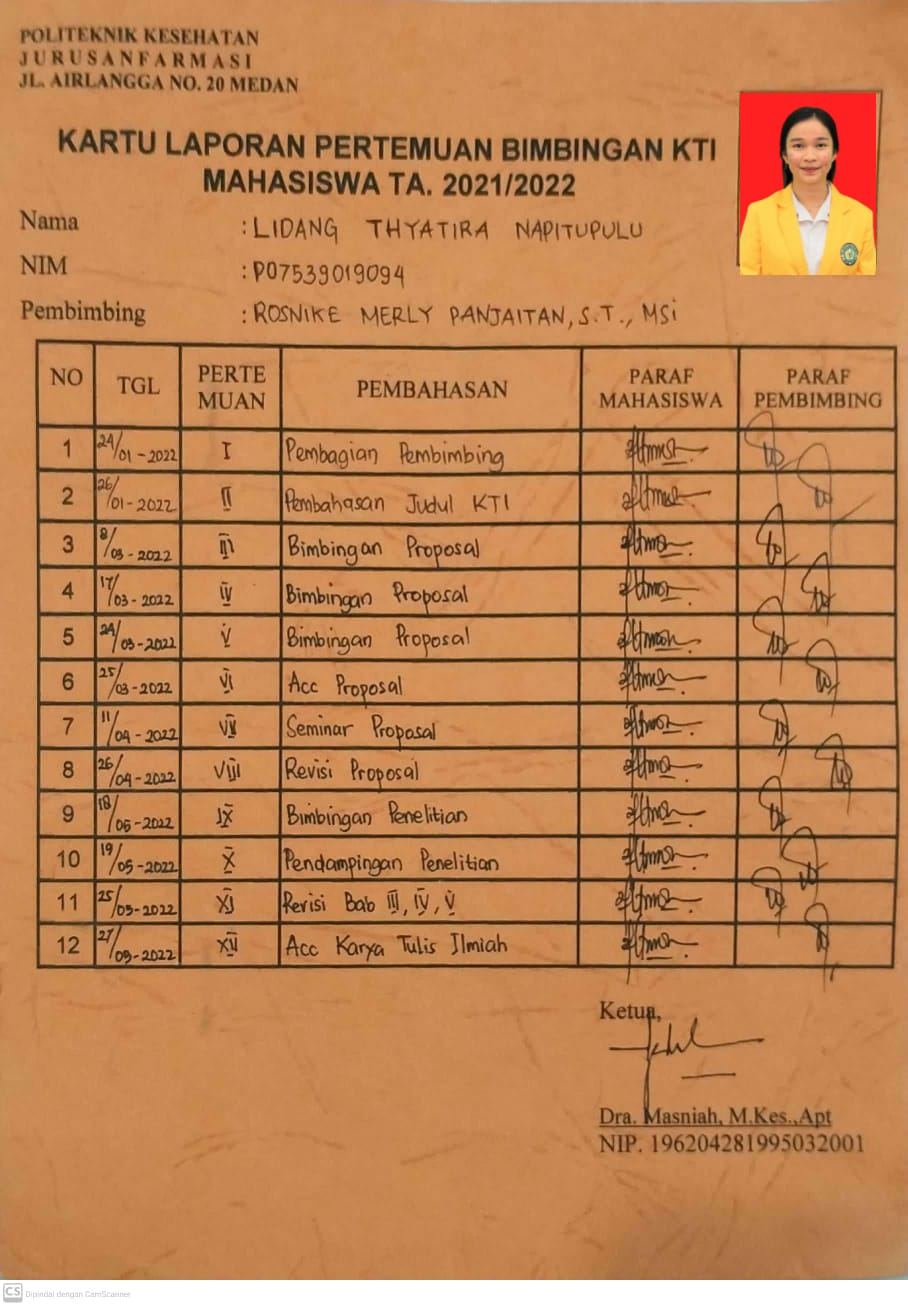 POLITEKNIK KESEHATAN
JURUSANFARMASI
JL. AIRLANGGA NO. 20 MEDAN
KARTU LAPORAN PERTEMUAN BIMBINGAN KTI
MAHASISWA TA. 2021/2022
Nama : LIDANG THYATIRA NAPITUPULU
NIM : P07539019094
Pembimbing : ROSNIKE MERLY PANJAITAN, S.T., MSi
NO TGL PERTE MUAN PEMBAHASAN PARAF MAHASISWA PARAF PEMBIMBING
1 24/01-2022 I Pembagian Pembimbing
2 26/01-2022 II Pembahasan Judul KTI
3 8/03-2022 III Bimbingan Proposal
4 17/03-2022 IV Bimbingan Proposal
5 24/03-2022 V Bimbingan Proposal
6 25/03-2022 VI Acc Proposal
7 11/04-2022 VII Seminar Proposal
8 26/04-2022 VIII Revisi Proposal
9 18/05-2022 IX Bimbingan Penelitian
10 19/05-2022 X Pendampingan Penelitian
11 25/05-2022 XI Revisi Bab III, IV, V
12 27/05-2022 XII Acc Karya Tulis Ilmiah
Ketua,
Dra. Masniah, M.Kes.,Apt
NIP. 196204281995032001
CS Dipindai dengan CamScanner